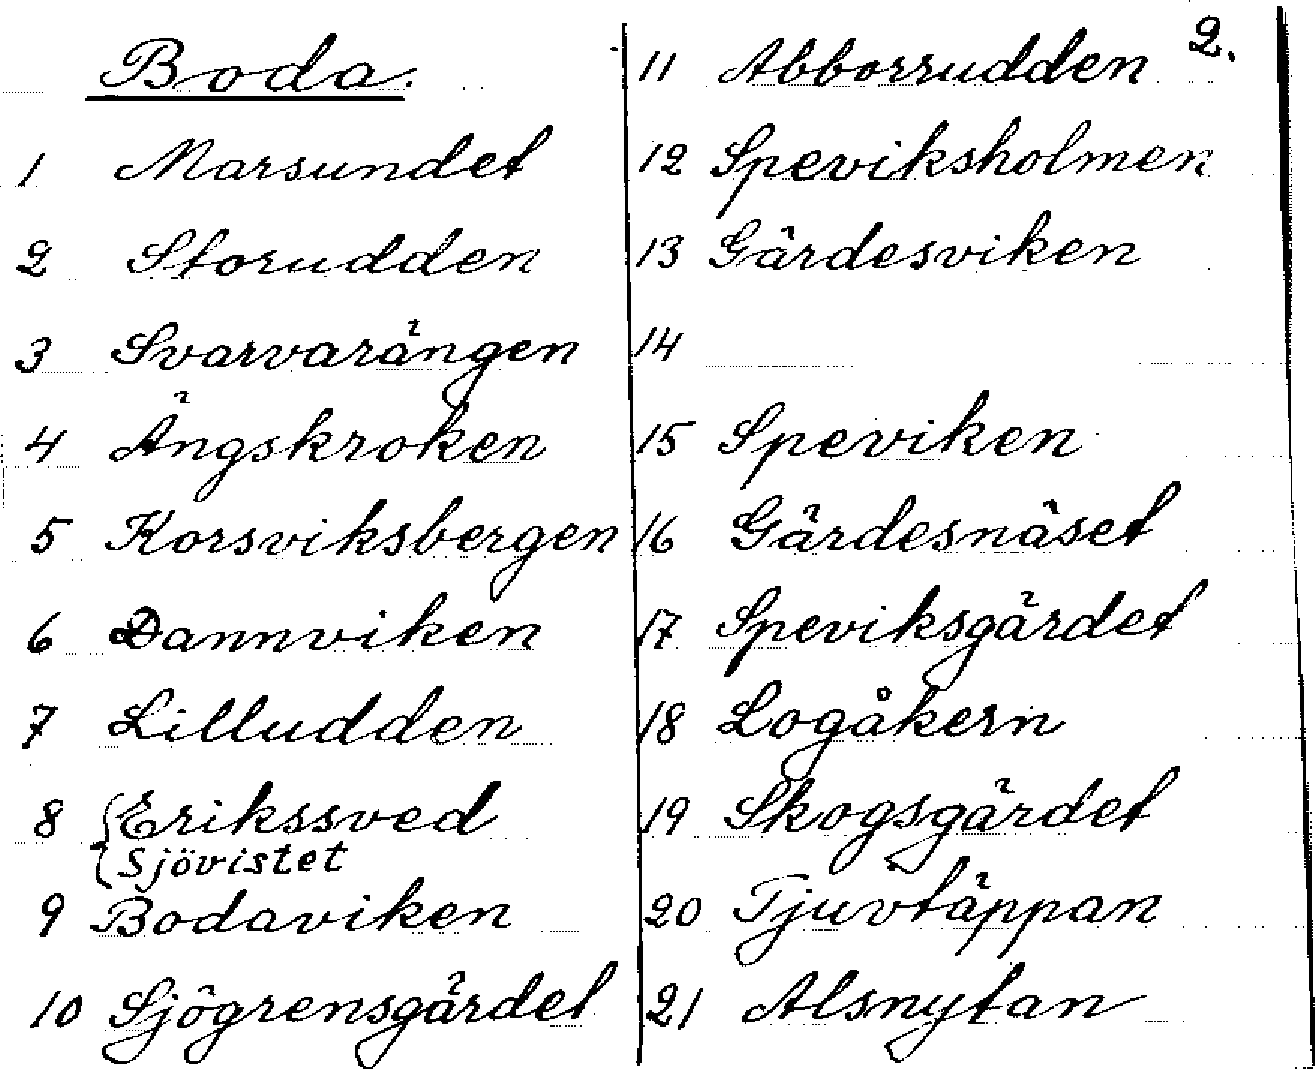 2.
Boda.
1 Marsundet
2 Storudden
3 Svarvarängen
4 Ängskroken
5 Korsviksbergen
6 Dannviken
7 Lilludden
8 Erikssved
Sjövistet
9 Bodaviken
10 Sjögrensgärdet
11 Abborrudden
12 Speviksholmen
13 Gärdesviken
14
15 Speviken
16 Gärdesnäset
17 Speviksgärdet
18 Logåkern
19 Skogsgärdet
20 Tjuvtäppan
21 Alsnytan